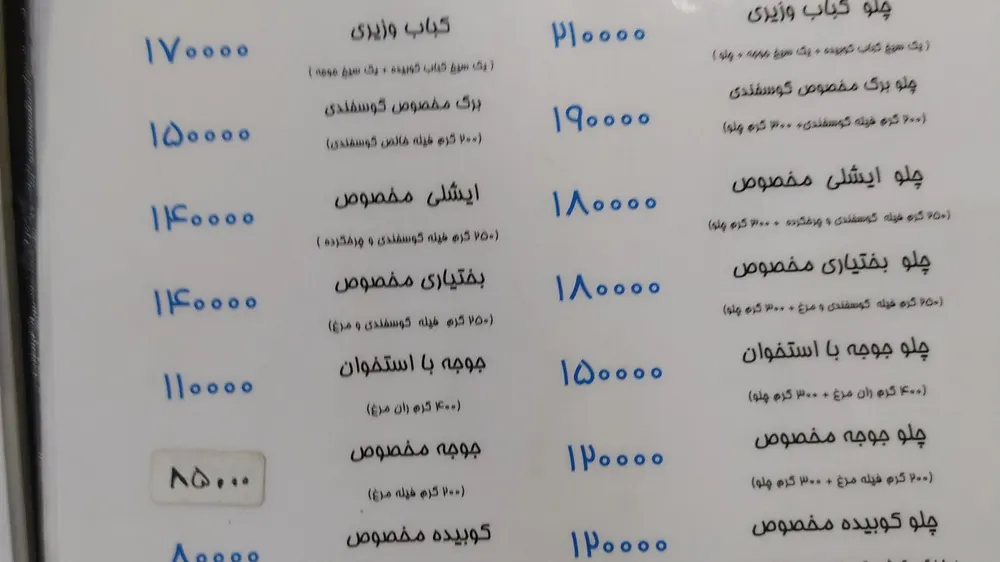 چلو کباب وزیری ۲۱۰۰۰۰
(یک سیخ کباب کوبیده + یک سیخ جوجه + چلو)
چلو برگ مخصوص گوسفندی ۱۹۰۰۰۰
(۲۰۰ گرم فیله گوسفندی+ ۳۰۰ گرم چلو)
چلو ایشلی مخصوص ۱۸۰۰۰۰
(۲۵۰ گرم فیله گوسفندی و چرخکرده + ۳۰۰ گرم چلو)
چلو بختیاری مخصوص ۱۸۰۰۰۰
(۲۵۰ گرم فیله گوسفندی و مرغ + ۳۰۰ گرم چلو)
چلو جوجه با استخوان ۱۵۰۰۰۰
(۴۰۰ گرم ران مرغ + ۳۰۰ گرم چلو)
چلو جوجه مخصوص ۱۲۰۰۰۰
(۲۰۰ گرم فیله مرغ + ۳۰۰ گرم چلو)
چلو کوبیده مخصوص ۱۲۰۰۰۰
کباب وزیری ۱۷۰۰۰۰
(یک سیخ کباب کوبیده + یک سیخ جوجه)
برگ مخصوص گوسفندی ۱۵۰۰۰۰
(۲۰۰ گرم فیله خالص گوسفندی)
ایشلی مخصوص ۱۴۰۰۰۰
(۲۵۰ گرم فیله گوسفندی و چرخکرده)
بختیاری مخصوص ۱۴۰۰۰۰
(۲۵۰ گرم فیله گوسفندی و مرغ)
جوجه با استخوان ۱۱۰۰۰۰
(۴۰۰ گرم ران مرغ)
جوجه مخصوص ۸۵۰۰۰
(۲۰۰ گرم فیله مرغ)
کوبیده مخصوص ۸۰۰۰۰